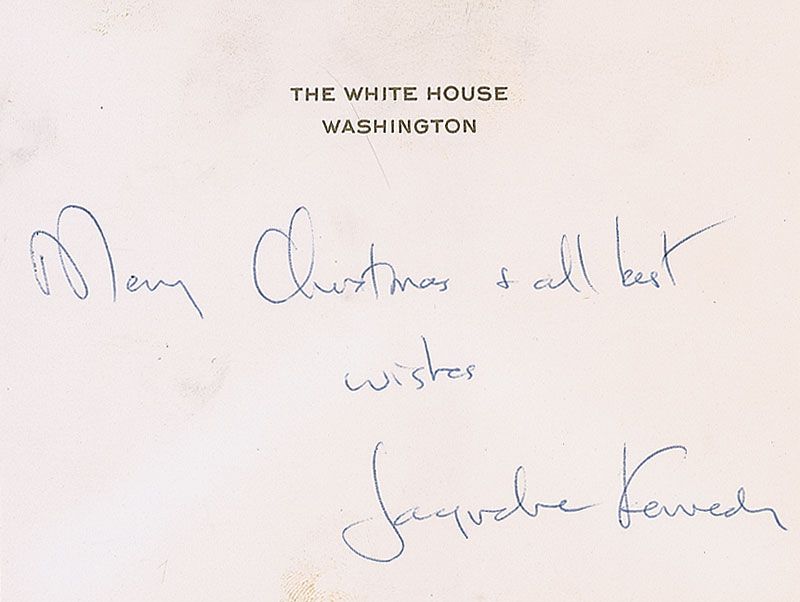 THE WHITE HOUSE
WASHINGTON
Merry Christmas & all best
wishes
Jacqueline Kennedy